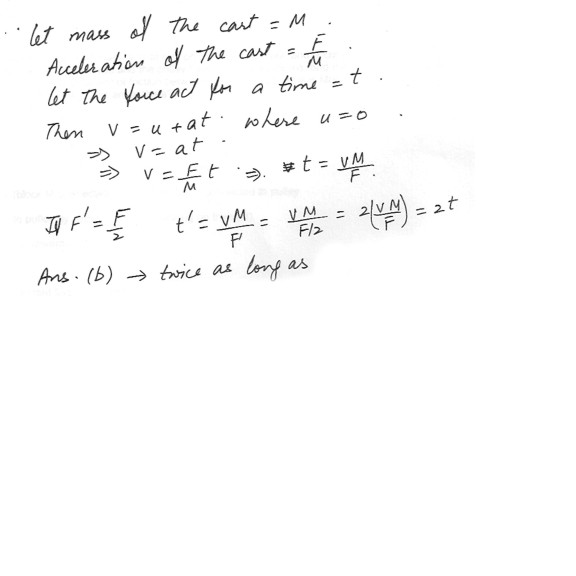 ∴ let mass of the cart = M .
Acceleration of the cart = F/M .
let the force act for a time = t .
Then v = u + at . where u = 0 .
⇒ v = at .
⇒ v = F/M t . ⇒. t = vM/F.
If F' = F/2 t' = vM/F' = vM/F/2 = 2(vM/F) = 2t
Ans. (b) → twice as long as